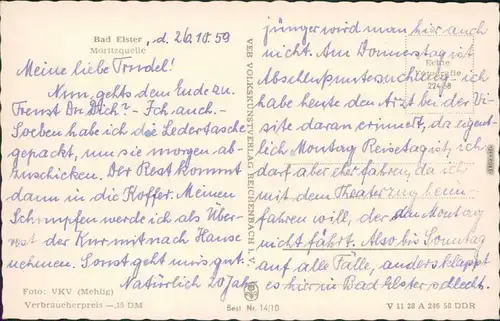 Bad Elster
Moritzquelle
, d. 26.10.59
Meine liebe Trudel!
Nun, gehts dem Ende zu.
Freust Du Dich? - Ich auch. -
Soeben habe ich die Ledertasche
gepackt, um sie morgen ab-
zuschicken. Der Rest kommt
dann in die Koffer. Meinen
Schnupfen werde ich als Über-
rest der Kur mit nach Hause
nehmen. Sonst geht uns gut.
Natürlich 20 Jahre
Foto: VKV (Mehlig)
Verbraucherpreis —,15 DM
Best. Nr. 14/10
VEB VOLKSKUNSTVERLAG REICHENBACH I. V.
jünger wird man hier auch
nicht. Am Donnerstag ist
Abschlußuntersuchung, ich
habe heute den Arzt bei der Vi-
site daran erinnert, da eigent-
lich Montag Reisetag ist, ich
darf aber eher fahren, da ich
mit dem Theaterzug heim-
fahren will, der den Montag
nicht fährt. Also bis Sonntag
auf alle Fälle, anders klappt
es hier in Bad Elster schlecht.
Echte
V 11 28 A 246 58 DDR